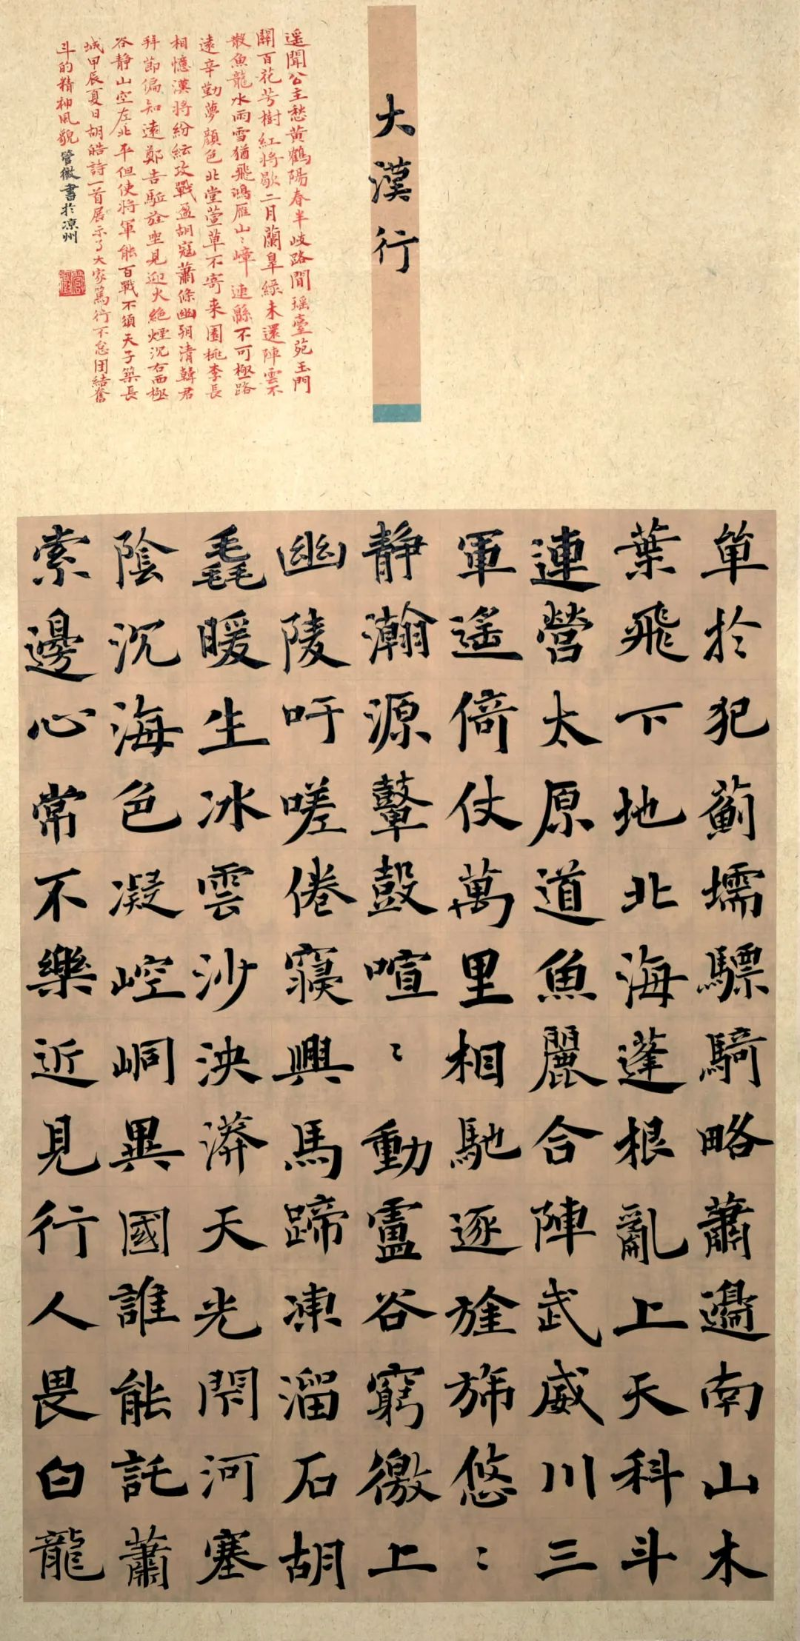 大漠行
單於犯薊壖驃騎略蕭邊南山木
葉飛下地北海蓬根亂上天科斗
連營太原道魚麗合陣武威川三
軍遙倚仗萬里相馳逐旌旆悠〻
靜瀚源鼙鼓喧〻動盧谷窮徼上
幽陵吁嗟倦寢興馬蹄凍溜石胡
毳暖生冰雲沙泱漭天光閉河塞
陰沉海色凝崆峒異國誰能託蕭
索邊心常不樂近見行人畏白龍
遥聞公主愁黃鶴陽春半歧路間瑶臺苑玉門
關百花芳樹紅將歇二月蘭皋綠未還陣雲不
散魚龍水雨雪猶飛鴻雁山〻嶂連緜不可極路
遠辛勤夢顏色北堂萱草不寄來園桃李長
相憶漢將紛紜攻戰盈胡寇蕭條幽朔清韓君
拜節偏知遠鄭吉驅旌坐見迎火絶煙沉右西極
谷静山空左北平但使將軍能百戰不須天子築長
城甲辰夏日胡皓詩一首展示了大家篤行不怠团結奮
斗的精神風貌管徽書於凉州